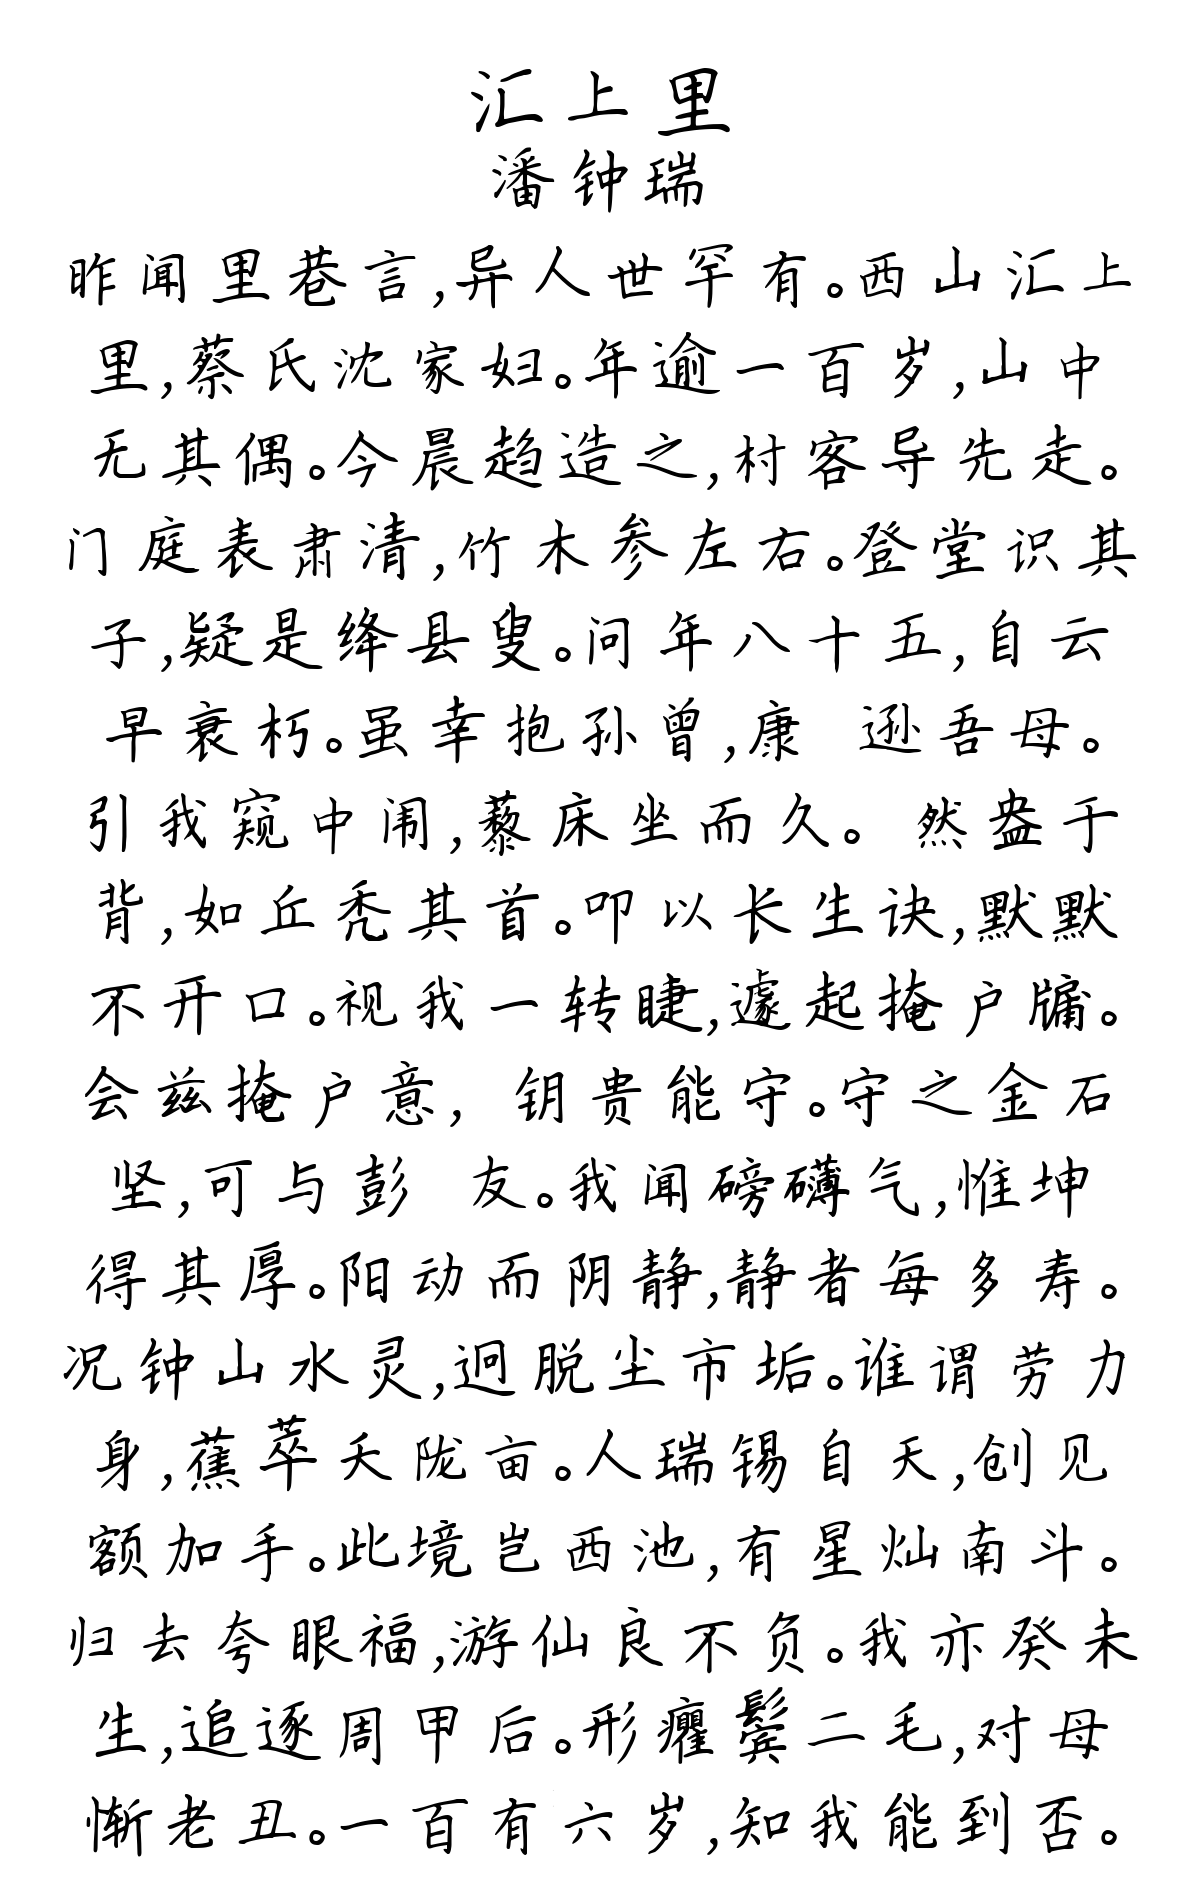 汇上里
潘钟瑞
昨闻里巷言,异人世罕有。西山汇上
里,蔡氏沈家妇。年逾一百岁,山中
无其偶。今晨趋造之,村客导先走。
门庭表肃清,竹木参左右。登堂识其
子,疑是绛县叟。问年八十五,自云
早衰朽。虽幸抱孙曾,康 逊吾母。
引我窥中闱,藜床坐而久。 然盎于
背,如丘秃其首。叩以长生诀,默默
不开口。视我一转睫,遽起掩户牖。
会兹掩户意, 钥贵能守。守之金石
坚,可与彭 友。我闻磅礴气,惟坤
得其厚。阳动而阴静,静者每多寿。
况钟山水灵,迥脱尘市垢。谁谓劳力
身,蕉萃夭陇亩。人瑞锡自天,创见
额加手。此境岂西池,有星灿南斗。
归去夸眼福,游仙良不负。我亦癸未
生,追逐周甲后。形癯鬓二毛,对母
惭老丑。一百有六岁,知我能到否。